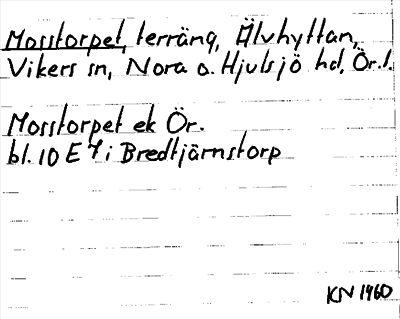 Mosstorpet, terräng, Älvhyttan,
Vikers sn, Nora o. Hjulsjö hd, Ör.l.
Mosstorpet ek Ör.
bl. 10 E 7 i Bredtjärnstorp
KN 1960